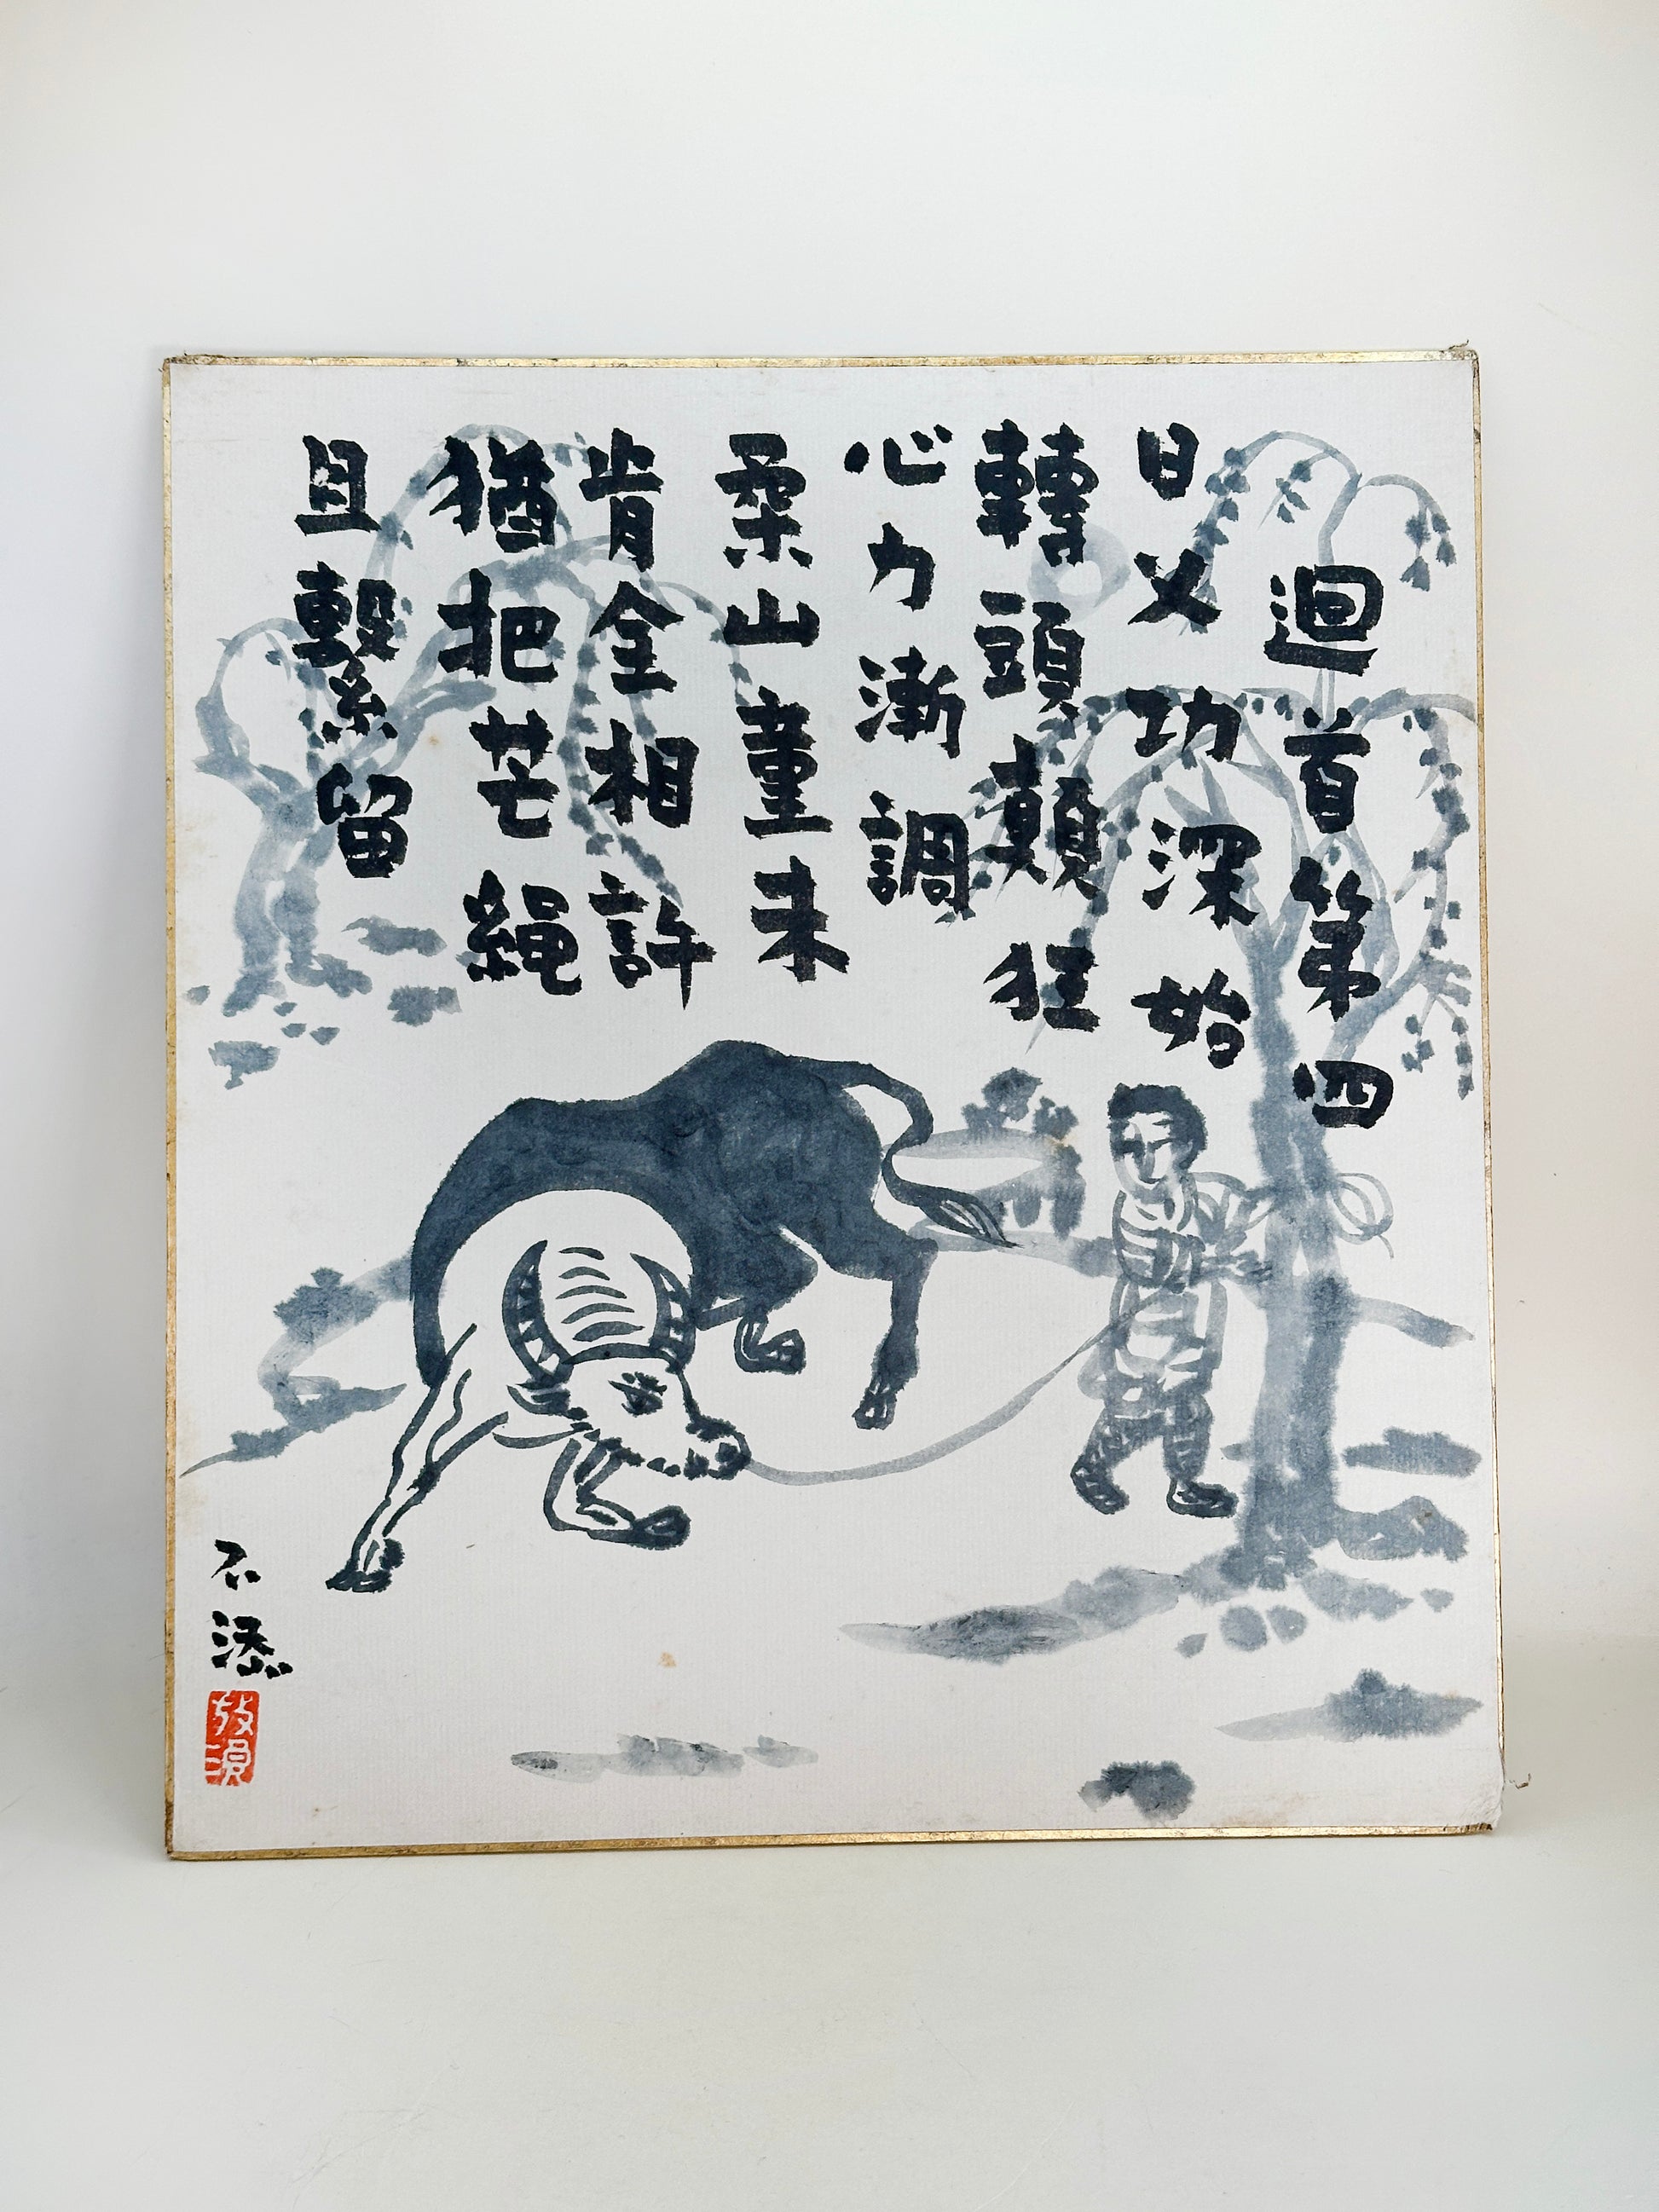 迴首第四
日乂功深始
轉頭顛狂
心力漸調
柔山童未
肯全相許
猶把芒繩
且繫留